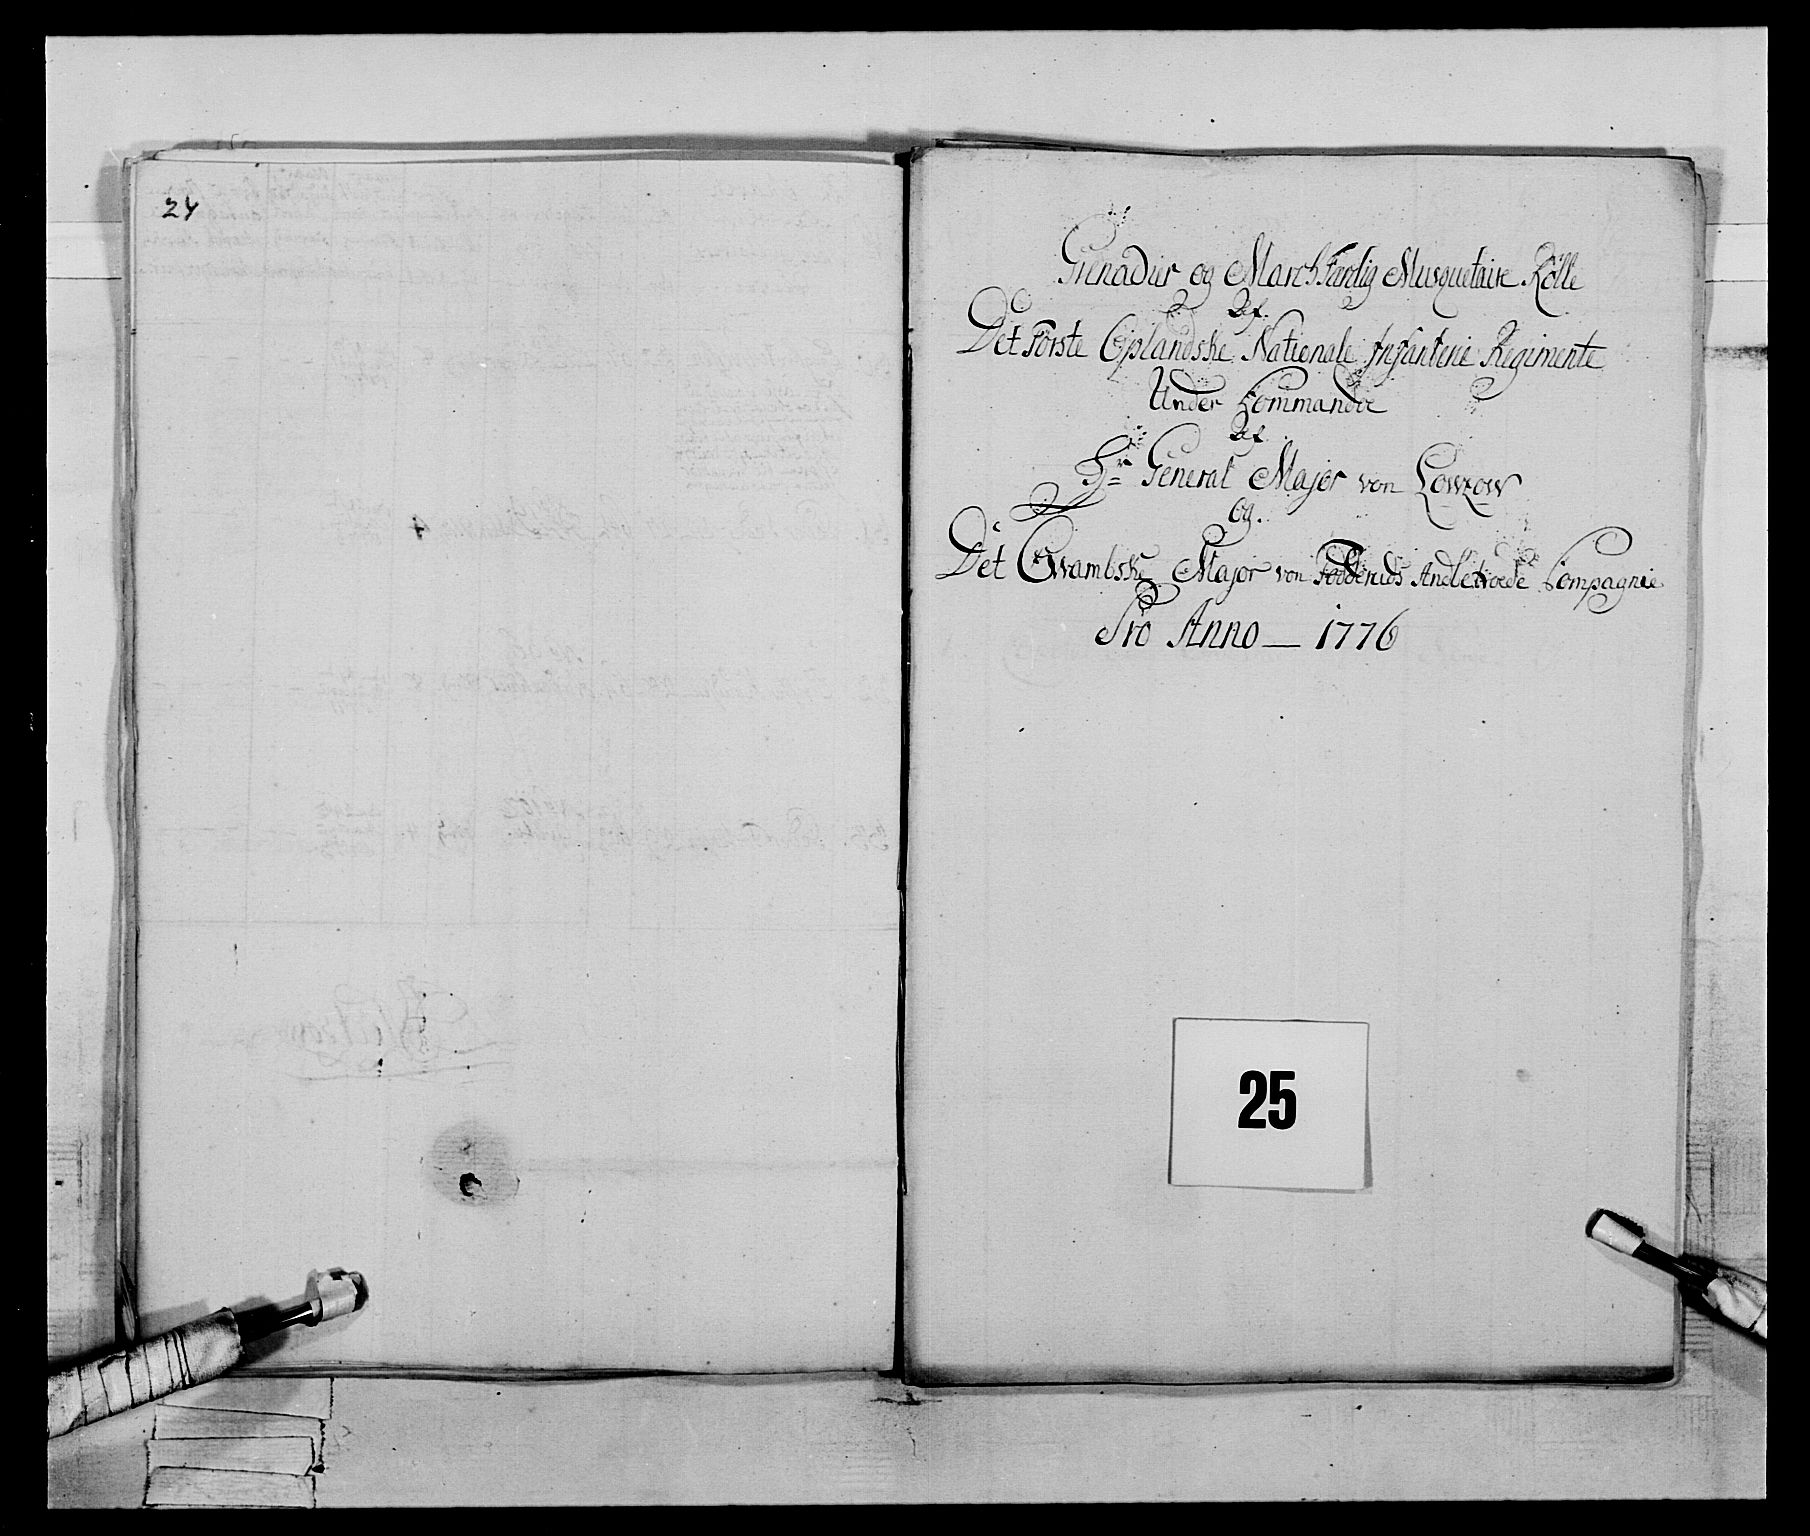 24
Grenadier og March Færdig Musquetaire Rölle
Af.
Det Förste Oplandske Nationale Infanterie Regimente
Under Commandoe
Af
Hr General Major von Lowzow
Og.
Det Major von Anbetroede Compagnie
Pro Anno — 1776
25